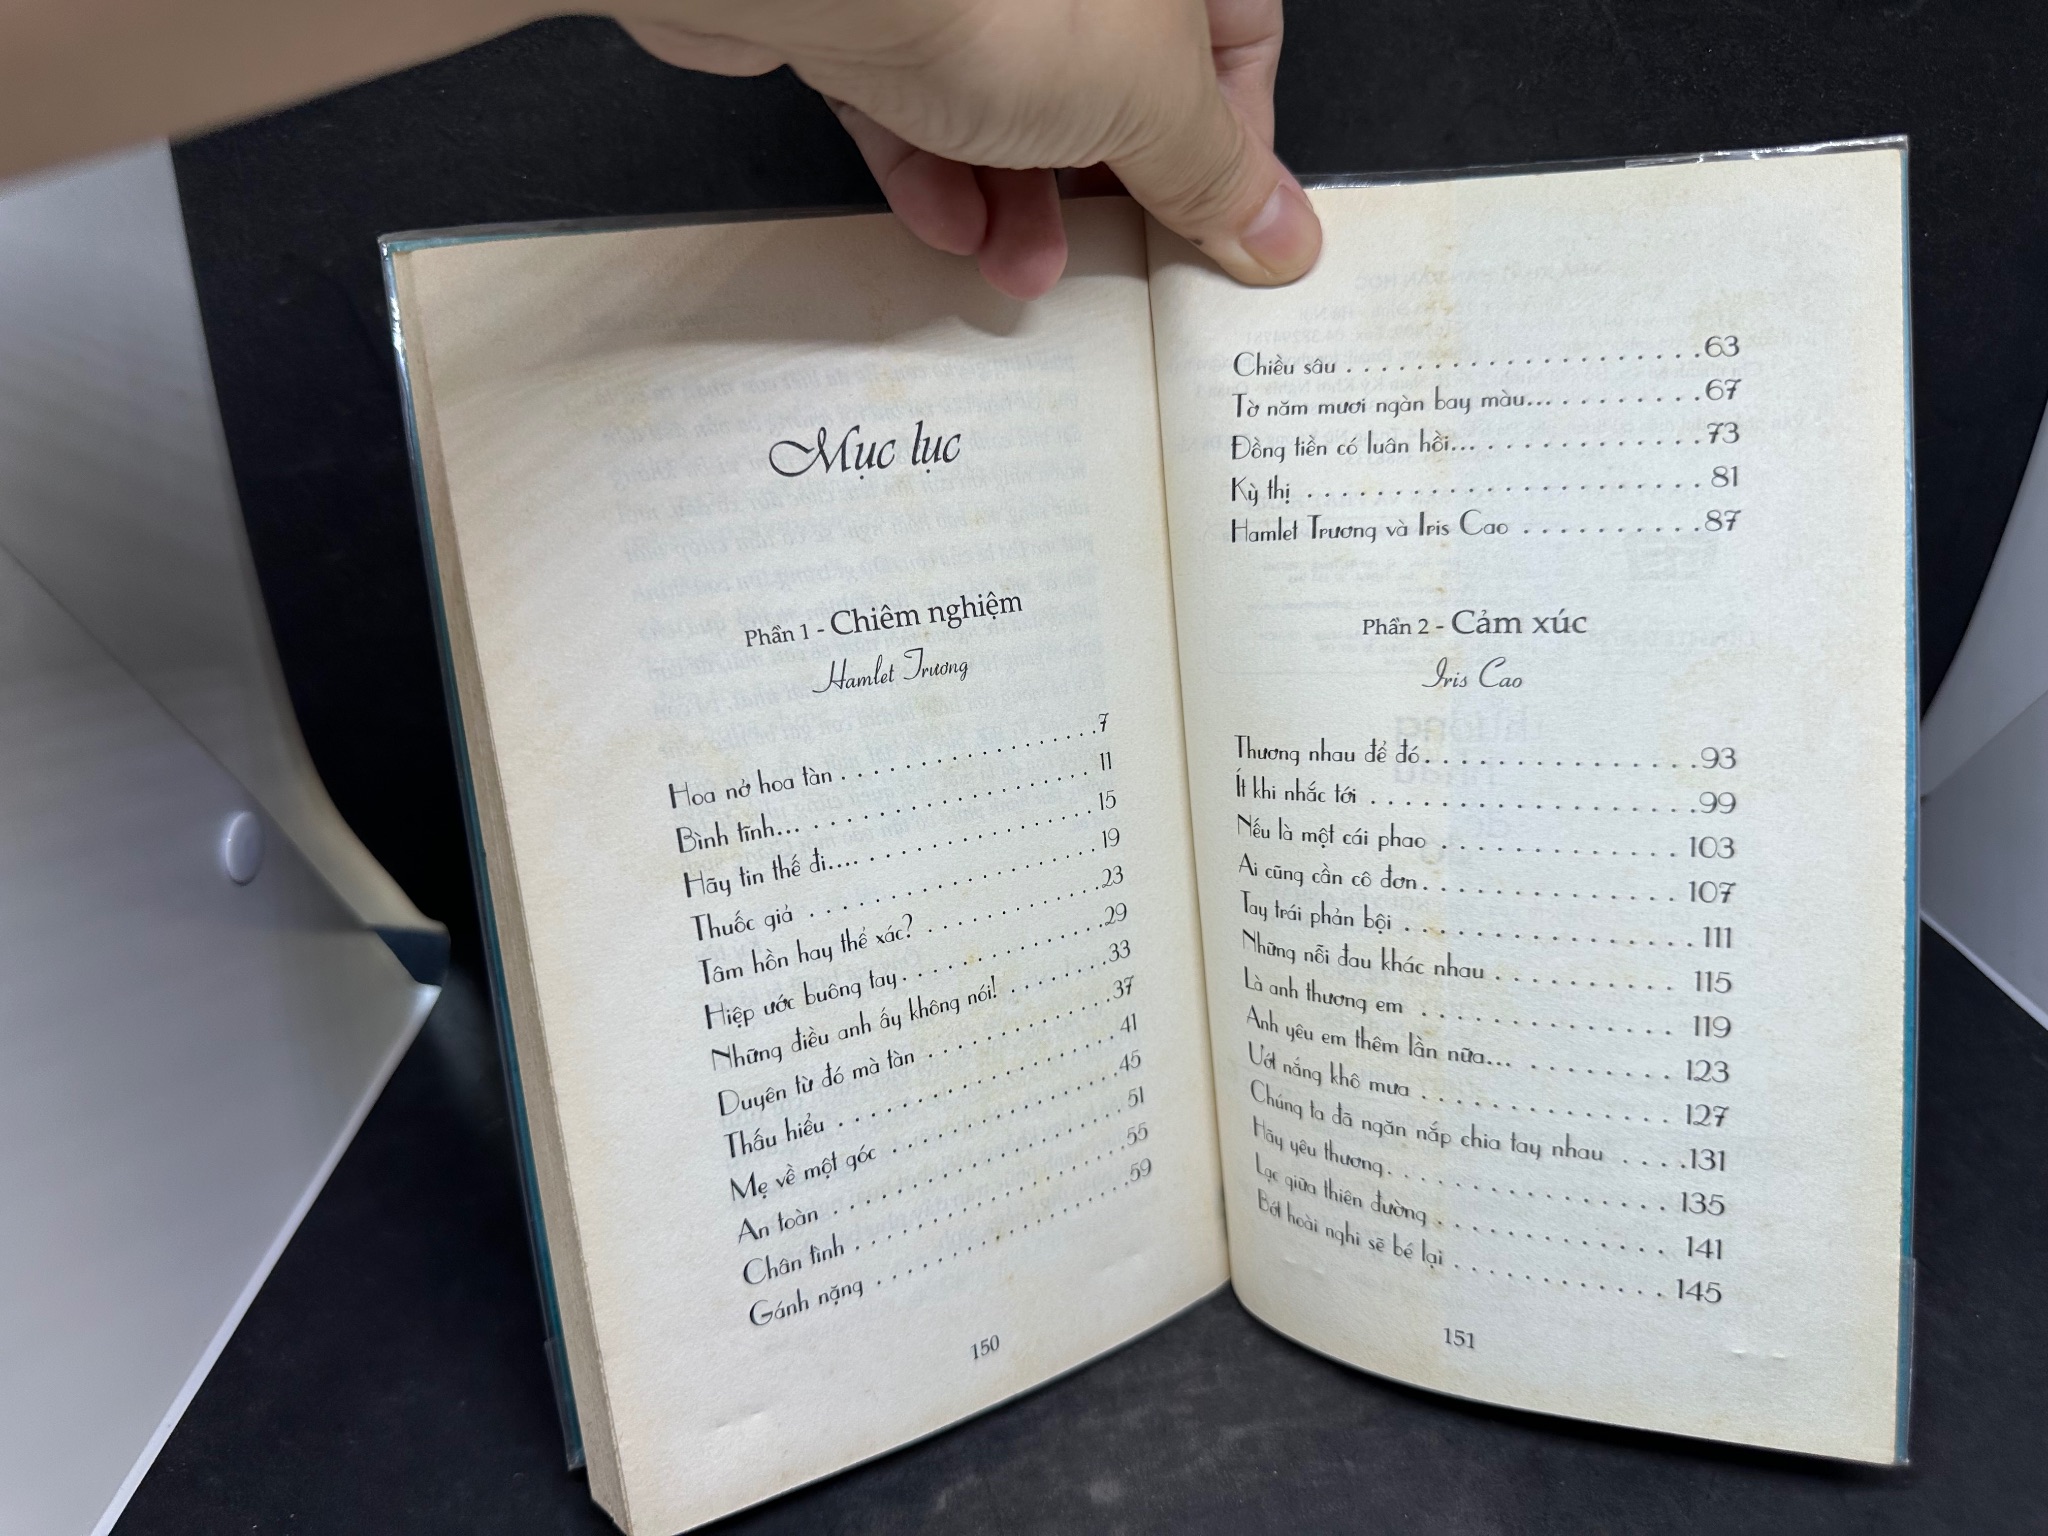 Mục lục
Phần 1 - Chiêm nghiệm
Hamlet Trương
Hoa nở hoa tàn . . . . . . . . . . . . . . . . . . . . 7
Bình tĩnh... . . . . . . . . . . . . . . . . . . . . . 11
Hãy tin thế đi.... . . . . . . . . . . . . . . . . . . 15
Thuốc giả . . . . . . . . . . . . . . . . . . . . . . 19
Tâm hồn hay thể xác? . . . . . . . . . . . . . . . 23
Hiệp ước buông tay . . . . . . . . . . . . . . . . 29
Những điều anh ấy không nói! . . . . . . . . . . 33
Duyên từ đó mà tàn . . . . . . . . . . . . . . . . 37
Thấu hiểu . . . . . . . . . . . . . . . . . . . . . . 41
Mẹ về một góc . . . . . . . . . . . . . . . . . . . 45
An toàn . . . . . . . . . . . . . . . . . . . . . . . 51
Chân tình . . . . . . . . . . . . . . . . . . . . . . 55
Gánh nặng . . . . . . . . . . . . . . . . . . . . . 59
150
Chiều sâu . . . . . . . . . . . . . . . . . . . . . 63
Tờ năm mươi ngàn bay màu... . . . . . . . . . 67
Đồng tiền có luân hồi... . . . . . . . . . . . . . 73
Kỳ thị . . . . . . . . . . . . . . . . . . . . . . . . 81
Hamlet Trương và Iris Cao . . . . . . . . . . . 87
Phần 2 - Cảm xúc
Iris Cao
Thương nhau để đó . . . . . . . . . . . . . . . . 93
Ít khi nhắc tới . . . . . . . . . . . . . . . . . . . 99
Nếu là một cái phao . . . . . . . . . . . . . . 103
Ai cũng cần cô đơn . . . . . . . . . . . . . . . 107
Tay trái phản bội . . . . . . . . . . . . . . . . . 111
Những nỗi đau khác nhau . . . . . . . . . . . 115
Là anh thương em . . . . . . . . . . . . . . . 119
Anh yêu em thêm lần nữa... . . . . . . . . . 123
Ướt nắng khô mưa . . . . . . . . . . . . . . . 127
Chúng ta đã ngăn nắp chia tay nhau . . . . 131
Hãy yêu thương . . . . . . . . . . . . . . . . . 135
Lạc giữa thiên đường . . . . . . . . . . . . . . 141
Bớt hoài nghi sẽ bé lại . . . . . . . . . . . . . 145
151